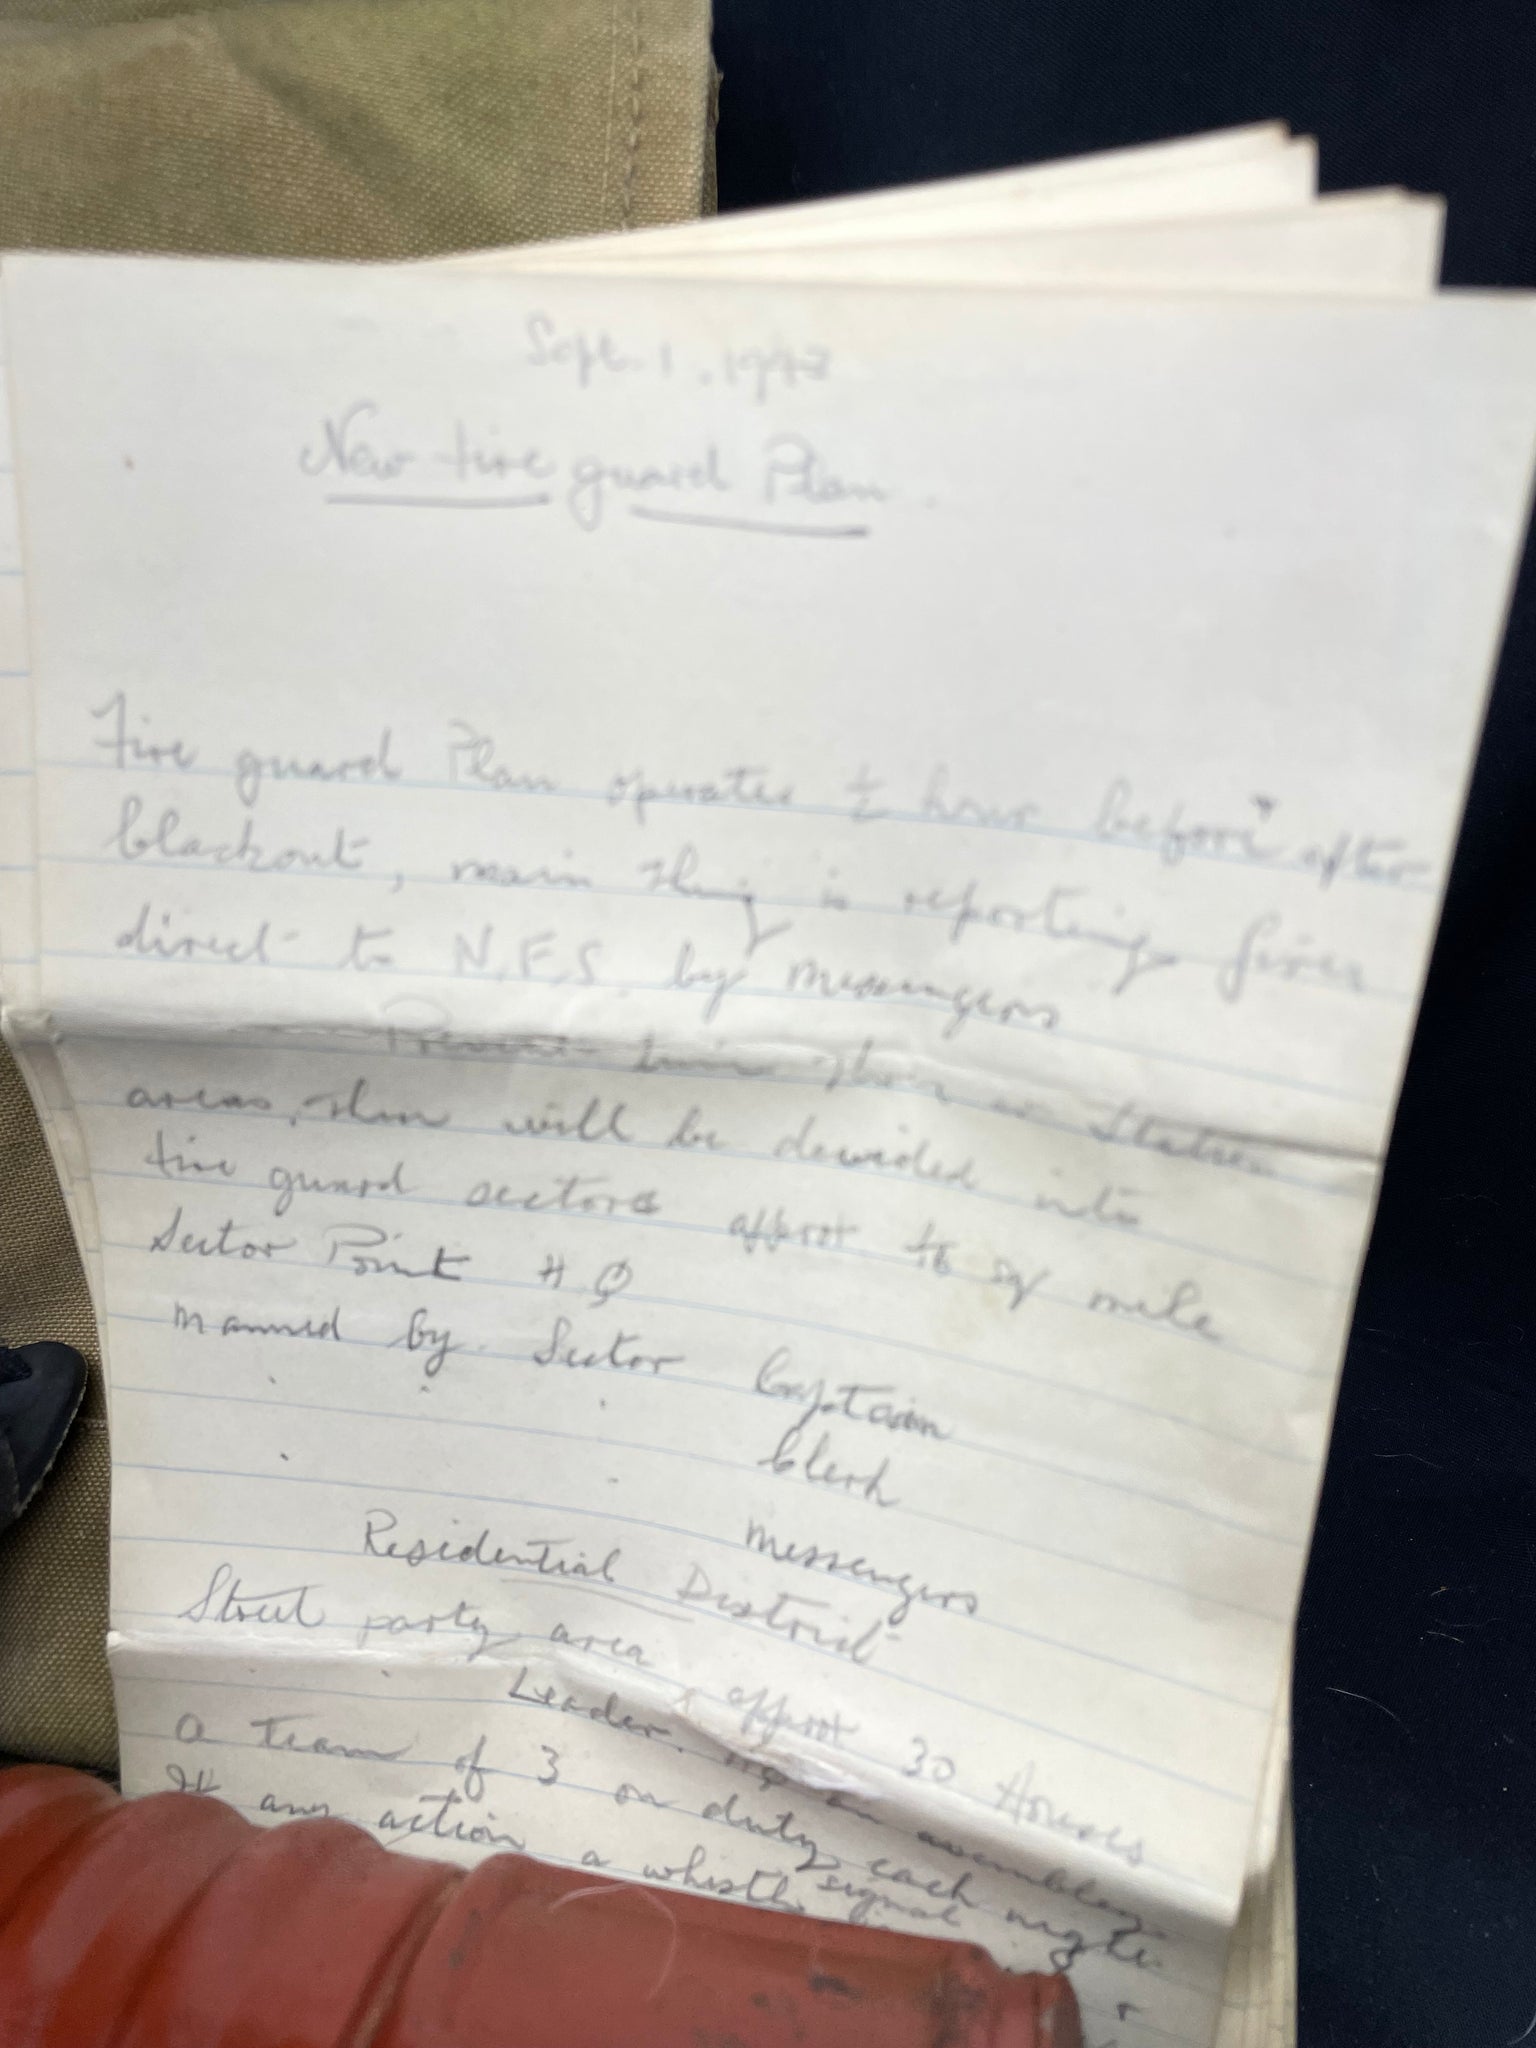 Sept. 1, 1943
New Fire guard Plan.
Fire guard Plan operates ½ hour before & after
blackout, main thing is reporting fires
direct to N.F.S. by messengers
areas, then will be devided into
fire guard sectors approx sq mile
Sector Point HQ
manned by Sector Captain
Clerk
messengers
Residential District
Street party area approx 30 Houses
Leader. assembly
a team of 3 on duty each night.
If any action a whistle signal